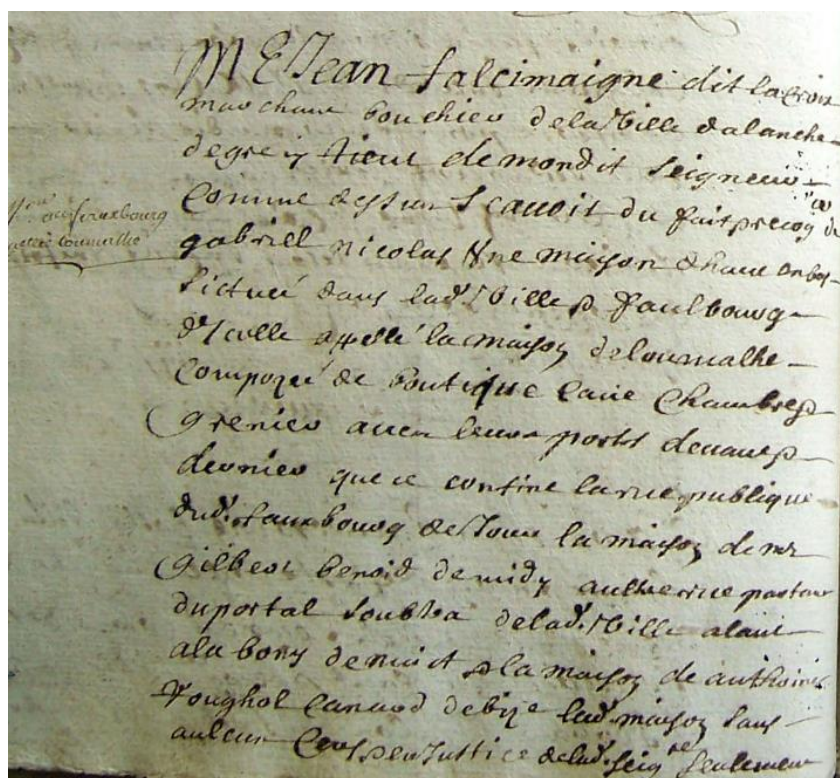 Me Jean Salcimaigne dit la Croix
marchant bouchier de la Ville dalanche
de gre y tient de mondit Seigneur
Comme dessus Scavoir du fait precog de
gabriell nicolas Une maison de haut en bas
Sictueé dans lad. Ville & faulbourg
dIcelle appellé la maison
Composeé de boutique Cave Chambre &
Grenier avec leurs portes devant &
dernier que se confine la rue publique
dud. fauxbourg de Jour la maison de mr
Gilbert benoid de midy aultre rue
du portal Soubtra de lad. Ville alant
a la de nuict & la maison de anthoine
Vonghol Canard de bize lad. maison Sans
aulcun Cens en Justice de lad. Seigrie Seulement
faux bourg